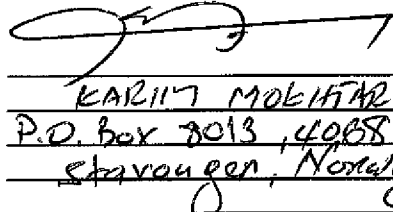 KARIM MOKHTAR
P.O. Box 8013, 4068
Stavanger, Norway